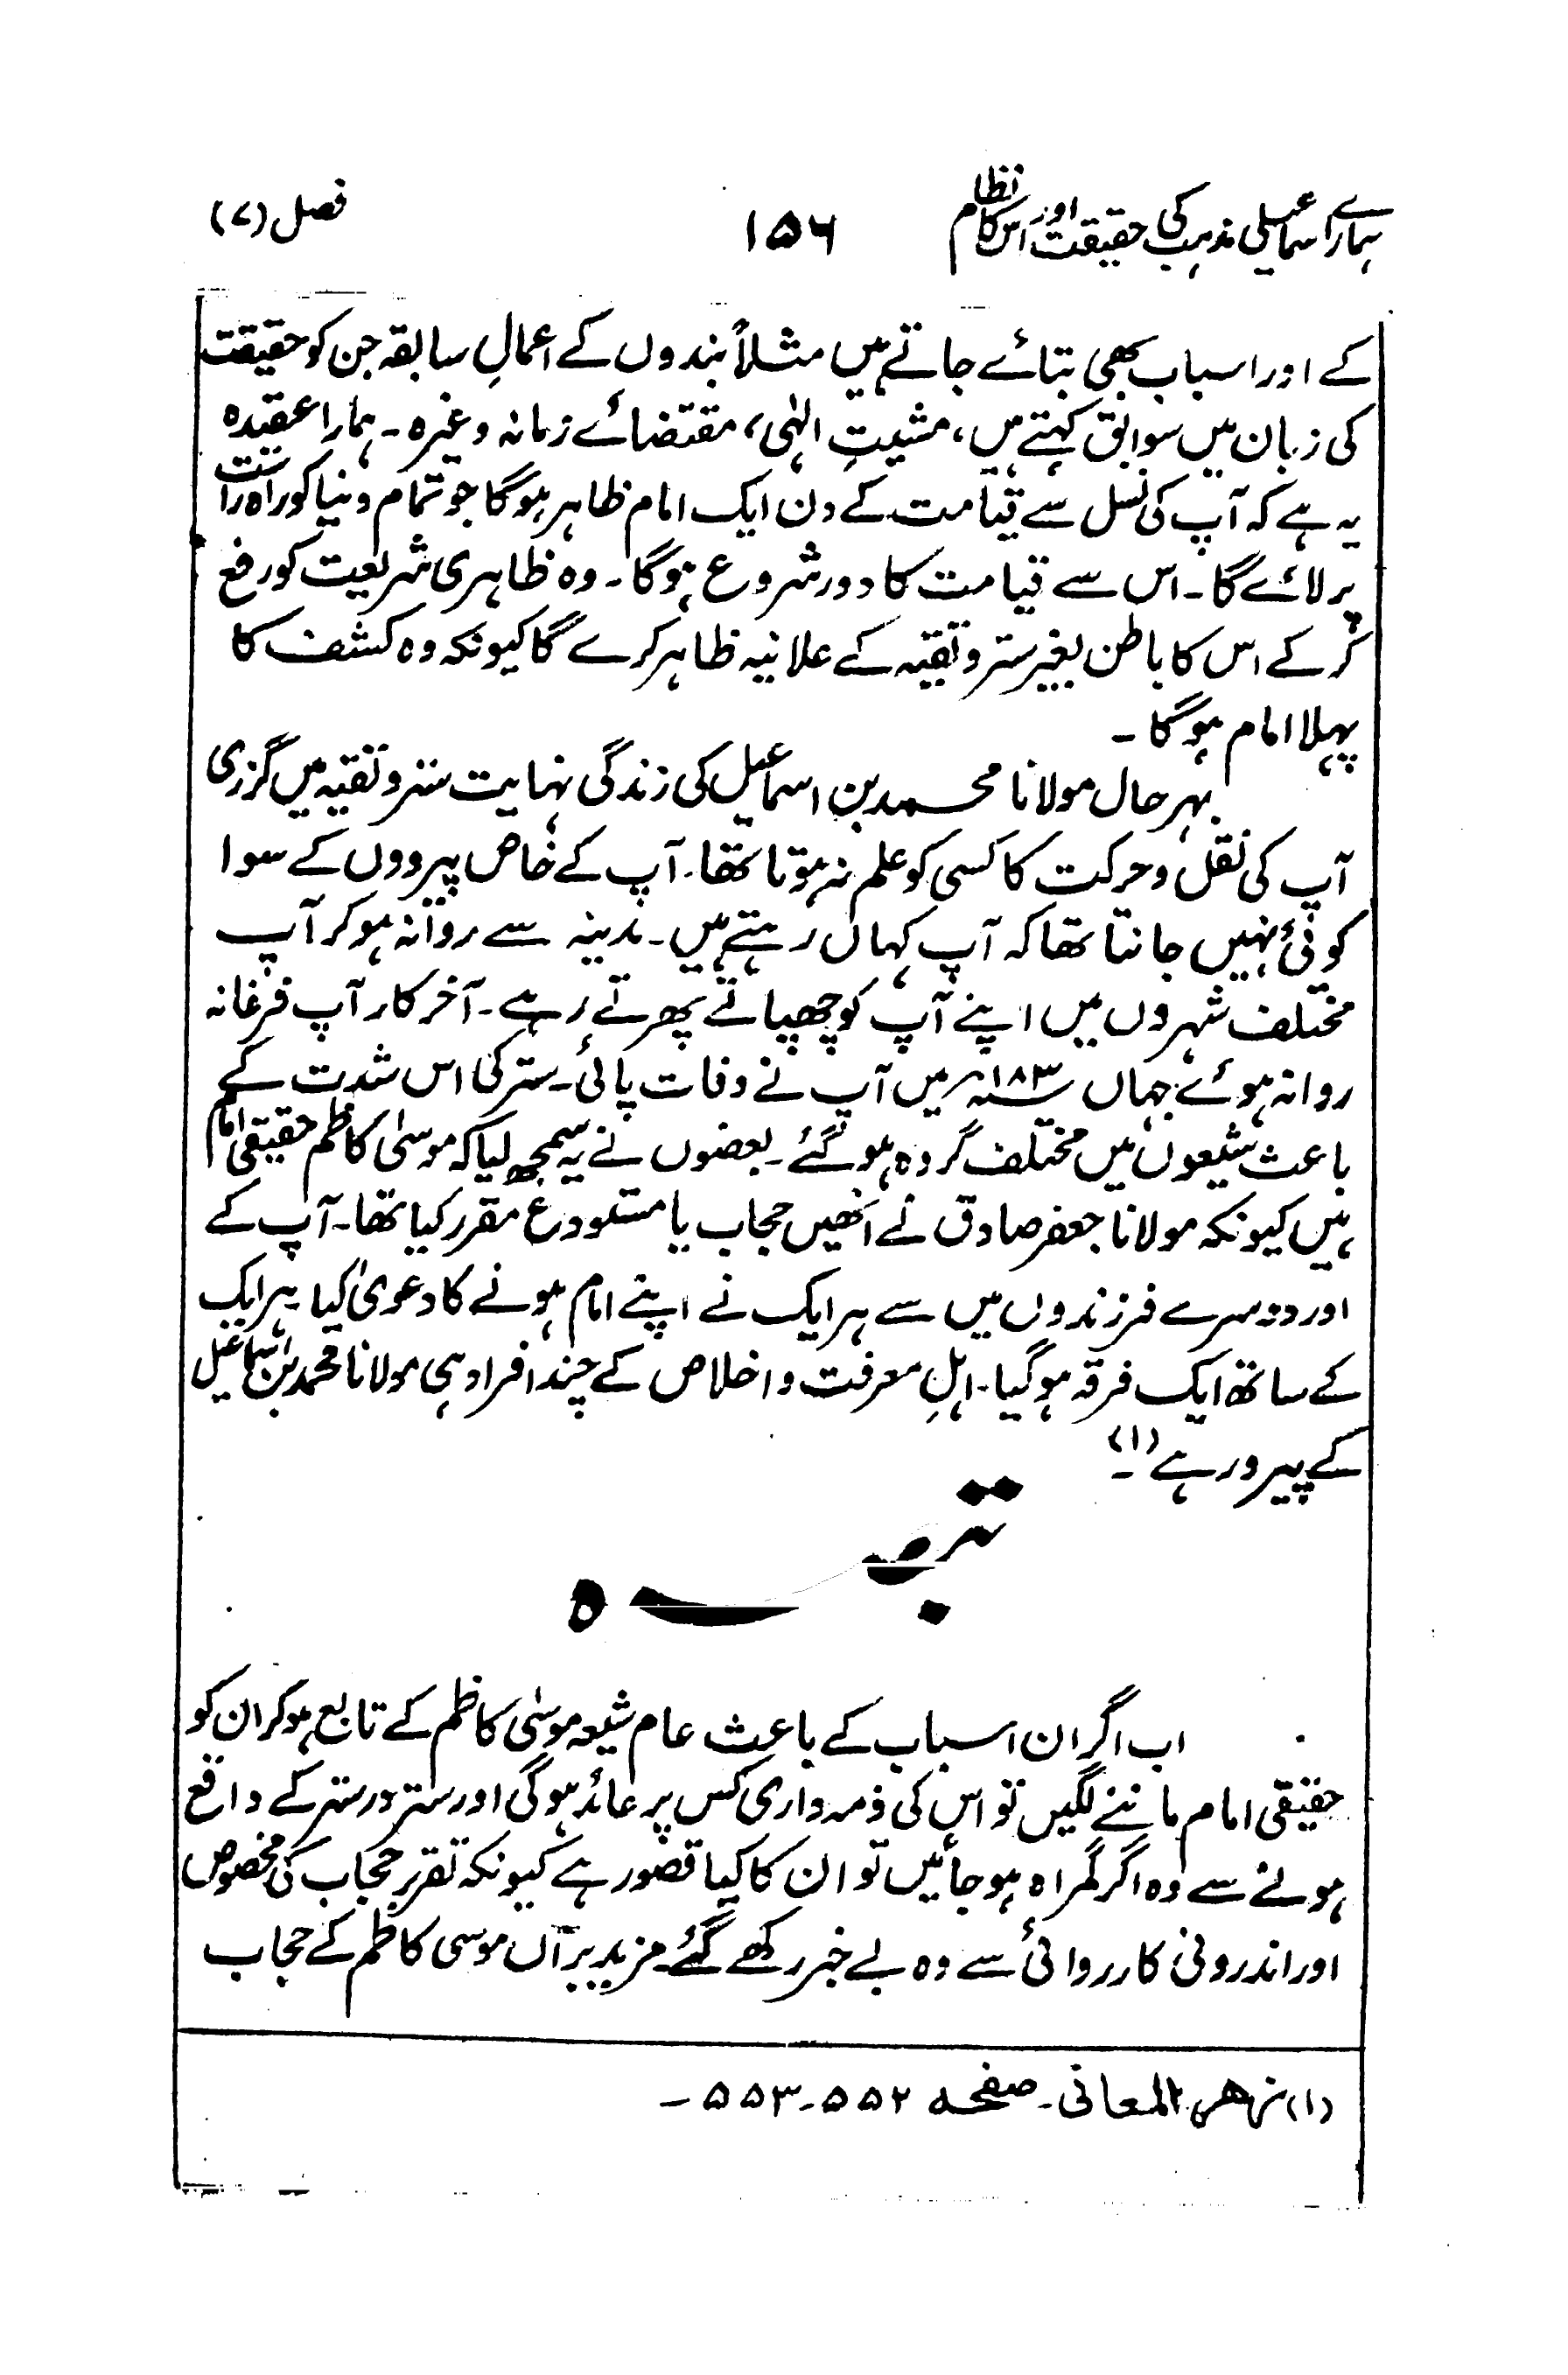 ہمارے اسماعیلی مذہب کی حقیقت اور اس کا نظام
۱۵۶
فصل (۷)
کے اور اسباب بھی بتائے جاتے ہیں مثلاً بندوں کے اعمالِ سابقہ جن کو حقیقت
کی زبان میں سوابق کہتے ہیں، مشیتِ الٰہی، مقتضائے زمانہ وغیرہ۔ ہمارا عقیدہ
یہ ہے کہ آپ کی نسل سے قیامت کے دن ایک امام ظاہر ہوگا جو تمام دنیا کو راہ راست
پر لائے گا۔ اس سے قیامت کا دور شروع ہوگا۔ وہ ظاہری شریعت کو رفع
کرکے اس کا باطن بغیر ستر و تقیہ کے علانیہ ظاہر کرے گا کیونکہ وہ کشف کا
پہلا امام ہوگا۔
بہر حال مولانا محمد بن اسماعیل کی زندگی نہایت ستر و تقیہ میں گزری
آپ کی نقل و حرکت کا کسی کو علم نہ ہوتا تھا۔ آپ کے خاص پیرووں کے سوا
کوئی نہیں جانتا تھا کہ آپ کہاں رہتے ہیں۔ مدینہ سے روانہ ہوکر آپ
مختلف شہروں میں اپنے آپ کو چھپاتے پھرتے رہے۔ آخر کار آپ فرغانہ
روانہ ہوئے جہاں ۱۸۳ھ میں آپ نے وفات پائی۔ ستر کی اس شدت کے
باعث شیعوں میں مختلف گروہ ہوگئے۔ بعضوں نے یہ سمجھ لیا کہ موسیٰ کاظم حقیقی امام
ہیں کیونکہ مولانا جعفر صادق نے انھیں حجاب یا مستودع مقرر کیا تھا۔ آپ کے
اور دوسرے فرزندوں میں سے ہر ایک نے اپنے امام ہونے کا دعویٰ کیا۔ ہر ایک
کے ساتھ ایک فرقہ ہوگیا۔ اہلِ معرفت و اخلاص کے چند افراد ہی مولانا محمد بن اسماعیل
کے پیرو رہے (۱)۔
تبصرہ
اب اگر ان اسباب کے باعث عام شیعہ موسیٰ کاظم کے تابع ہوکر ان کو
حقیقی امام ماننے لگیں تو اس کی ذمہ داری کس پر عائد ہوگی اور ستر در ستر کے واقع
ہونے سے وہ اگر گمراہ ہوجائیں تو ان کا کیا قصور ہے کیونکہ تقرر حجاب کی مخصوص
اور اندرونی کارروائی سے وہ بے خبر رکھے گئے۔ مزید برآں موسی کاظم کے حجاب
(۱) زهر المعانی۔ صفحہ ۵۵۲۔۵۵۳۔